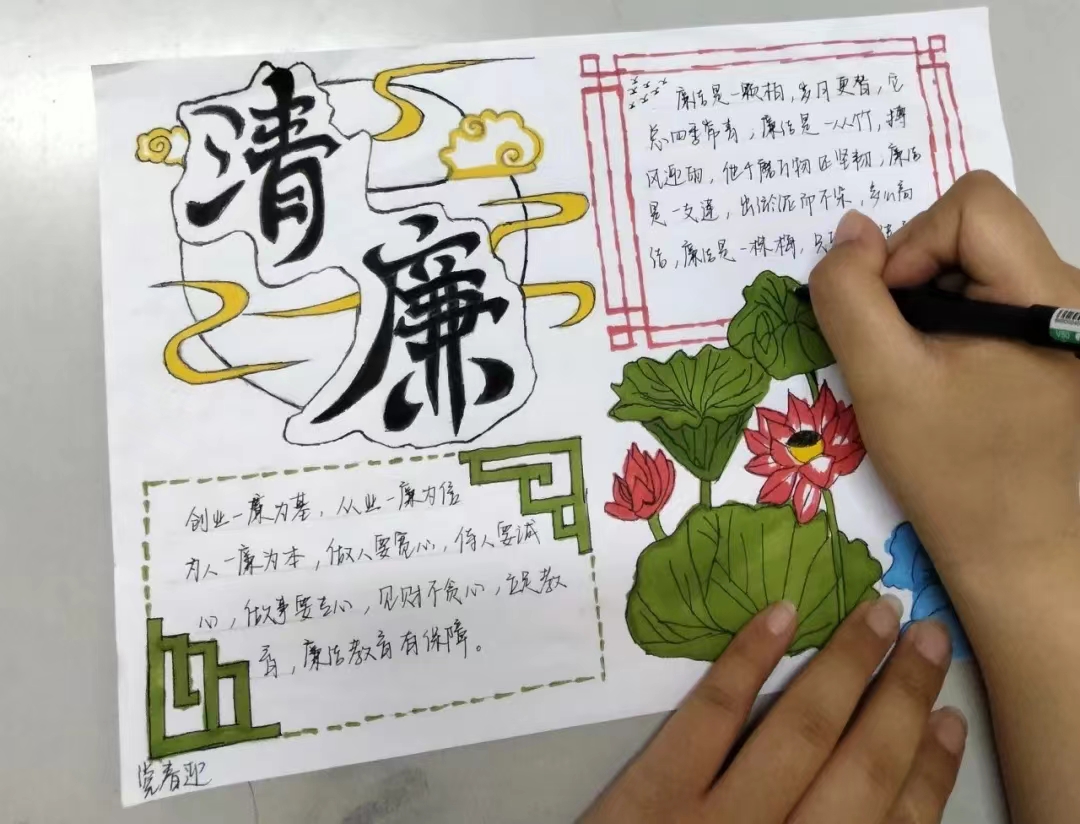 清
廉
廉洁是一颗柏，岁月更替，它
总四季常青，廉洁是一从竹，搏
风迎雨，他千磨万物还坚韧，廉洁
是一支莲，出於泥而不染，多么高
洁，廉洁是一株梅，只
创业一廉为基，从业一廉为信
为人一廉为本，做人要宽心，待人要诚
心，做事要专心，见财不贪心，立足教
育，廉洁教育有保障。